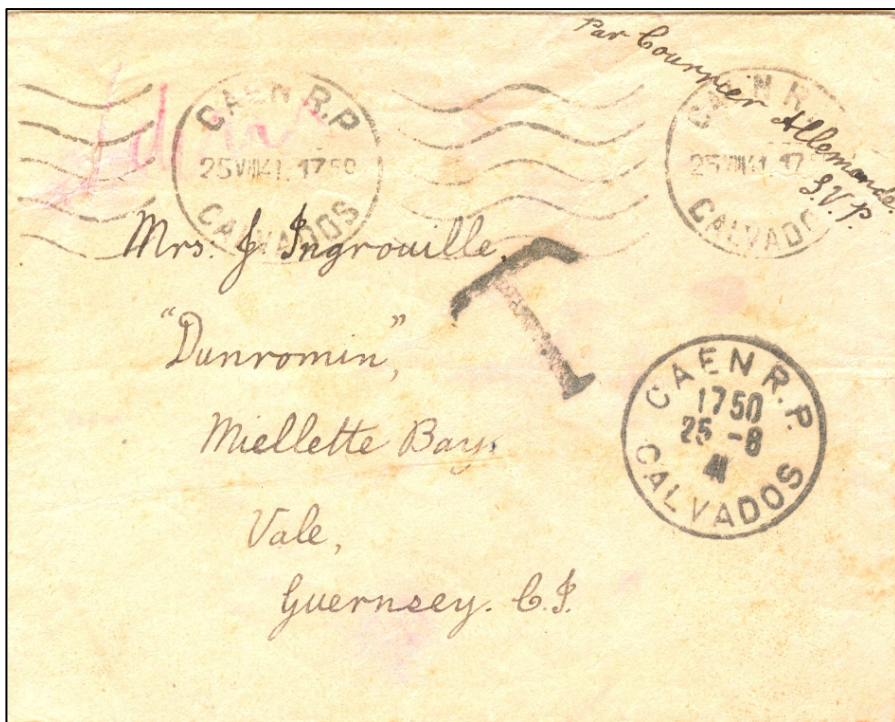 Par Courrier Allemande
S.V.P.
CAEN R.P
25 VIII 41. 17 50
CALVADOS
CAEN R.
25 VIII 41 17
CALVADO
Mrs. J Ingrouille.
"Dunromin",
Miellette Bay,
Vale,
Guernsey. C.I.
T
CAEN R.P.
17 50
25 - 8
41
CALVADOS